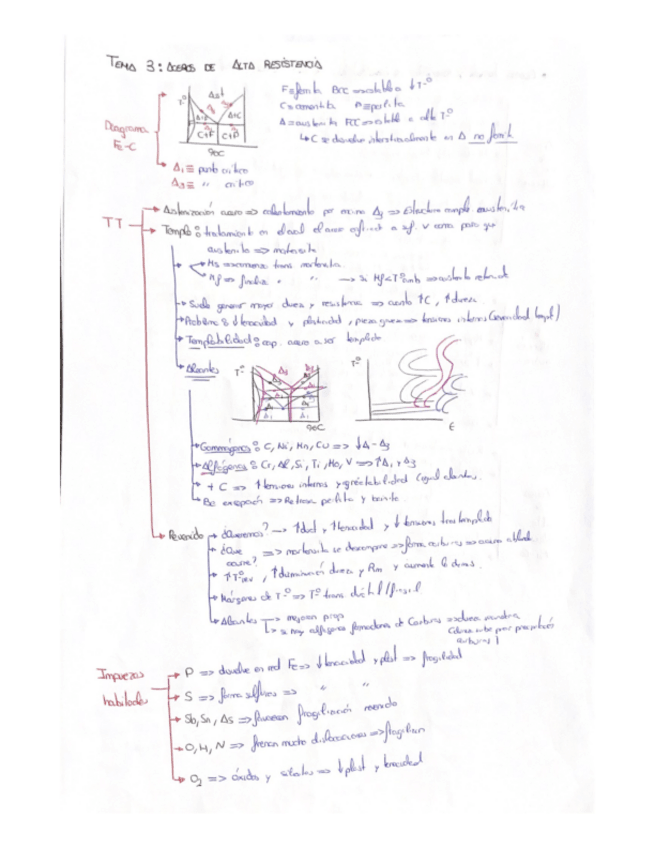 TEMA 3: ACEROS DE ALTA RESISTENCIA
Diagrama Fe-C
Tº
A
A+C
C+F
C+P
%C
F=ferrita BCC => estable a ↓Tº
C=cementita P=perlita
A=austenita FCC => estable a alta Tº
↳ C se disuelve intersticialmente en A no ferrita
A1 ≡ punto crítico
A3 ≡ " crítico
TT
Austenización acero => calentamiento por encima A3 => Estructura compl. austenítica
Temple: tratamiento en el cual el acero
austenita => martensita
Ms => comienza trans martensita
Mf => finaliza " " → si Mf<Tºamb => austenita retenida
Suele generar mayor dureza y resistencia => cuanto ↑C, ↑dureza
Problema: ↓tenacidad y plasticidad, piezas => tensiones internas
Templabilidad: cap. acero a ser templado
Aleantes
Tº
%C
Tº
t
Gammágenos: C, Ni, Mn, Cu => ↓A1-A3
Alfágenos: Cr, Al, Si, Ti, Mo, V => ↑A1 y A3
+ C => ↑tensiones internas y
Co excepción => Retrasa perlita y bainita
Revenido
¿Queremos? → ↑duct y ↑tenacidad y ↓ tensiones tras temple
¿Qué ocurre? => martensita se descompone => forma carburos =>
↑Tºrev, ↑disminución dureza y Rm y aumenta
Márgenes de Tº => Tº trans dúctil/frágil
Aleantes
mejoran prop
si muy alfágenos formadores de Carburos => dureza secundaria
carburos
Impurezas habituales
P => disuelve en red Fe => ↓tenacidad y plast => fragilidad
S => forma sulfuros => " "
Sb, Sn, As => favorecen fragilización revenido
O, H, N => frenan mucho dislocaciones => fragilizan
O2 => óxidos y silicatos => ↓plast y tenacidad